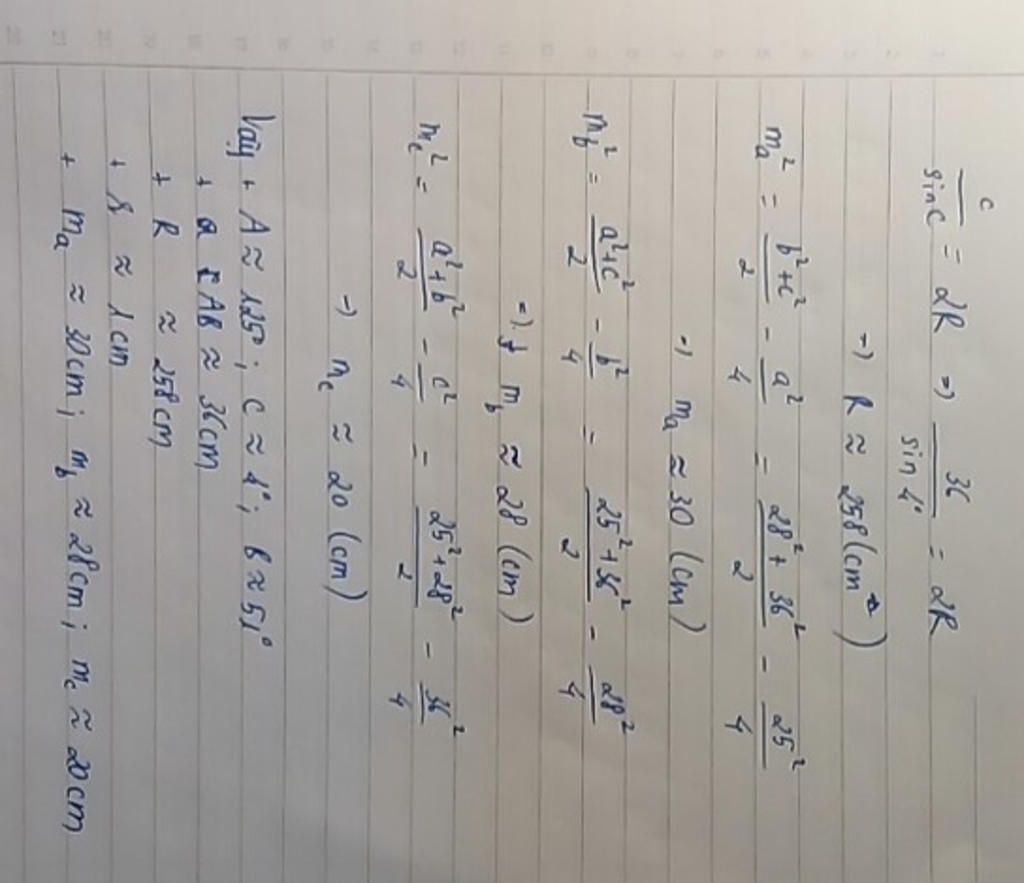 c/sin C = 2R => 36/sin 4° = 2R
=> R ≈ 258 (cm)
m_a² = (b²+c²)/2 - a²/4 = (28² + 36²)/2 - 25²/4
=> m_a ≈ 30 (cm)
m_b² = (a²+c²)/2 - b²/4 = (25²+36²)/2 - 28²/4
=> m_b ≈ 28 (cm)
m_c² = (a²+b²)/2 - c²/4 = (25²+28²)/2 - 36²/4
=> m_c ≈ 20 (cm)
Vậy + A ≈ 125°; C ≈ 4°; B ≈ 51°
+ AB ≈ 36cm
+ R ≈ 258cm
+ ≈ 1cm
+ m_a ≈ 30cm; m_b ≈ 28cm; m_c ≈ 20cm